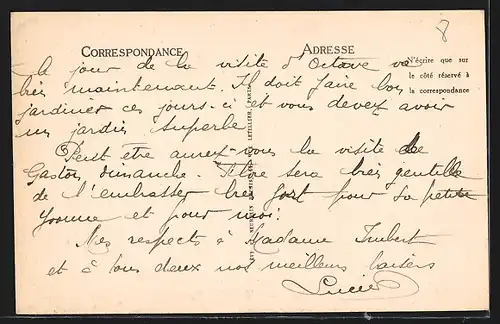 8
CORRESPONDANCE
ADRESSE
N'écrire que sur
le côté réservé à
la correspondance
le jour de la visite d'Octave va
très maintenant. Il doit faire bon
jardiner ces jours-ci et vous devez avoir
un jardin superbe
Peut être aurez-vous la visite de
Gaston dimanche. Titre sera très gentille
de l'embrasser très fort pour sa petite
Yvonne et pour moi.
Mes respects à Madame Imbert
et à tous deux nos meilleurs baisers
Lucie